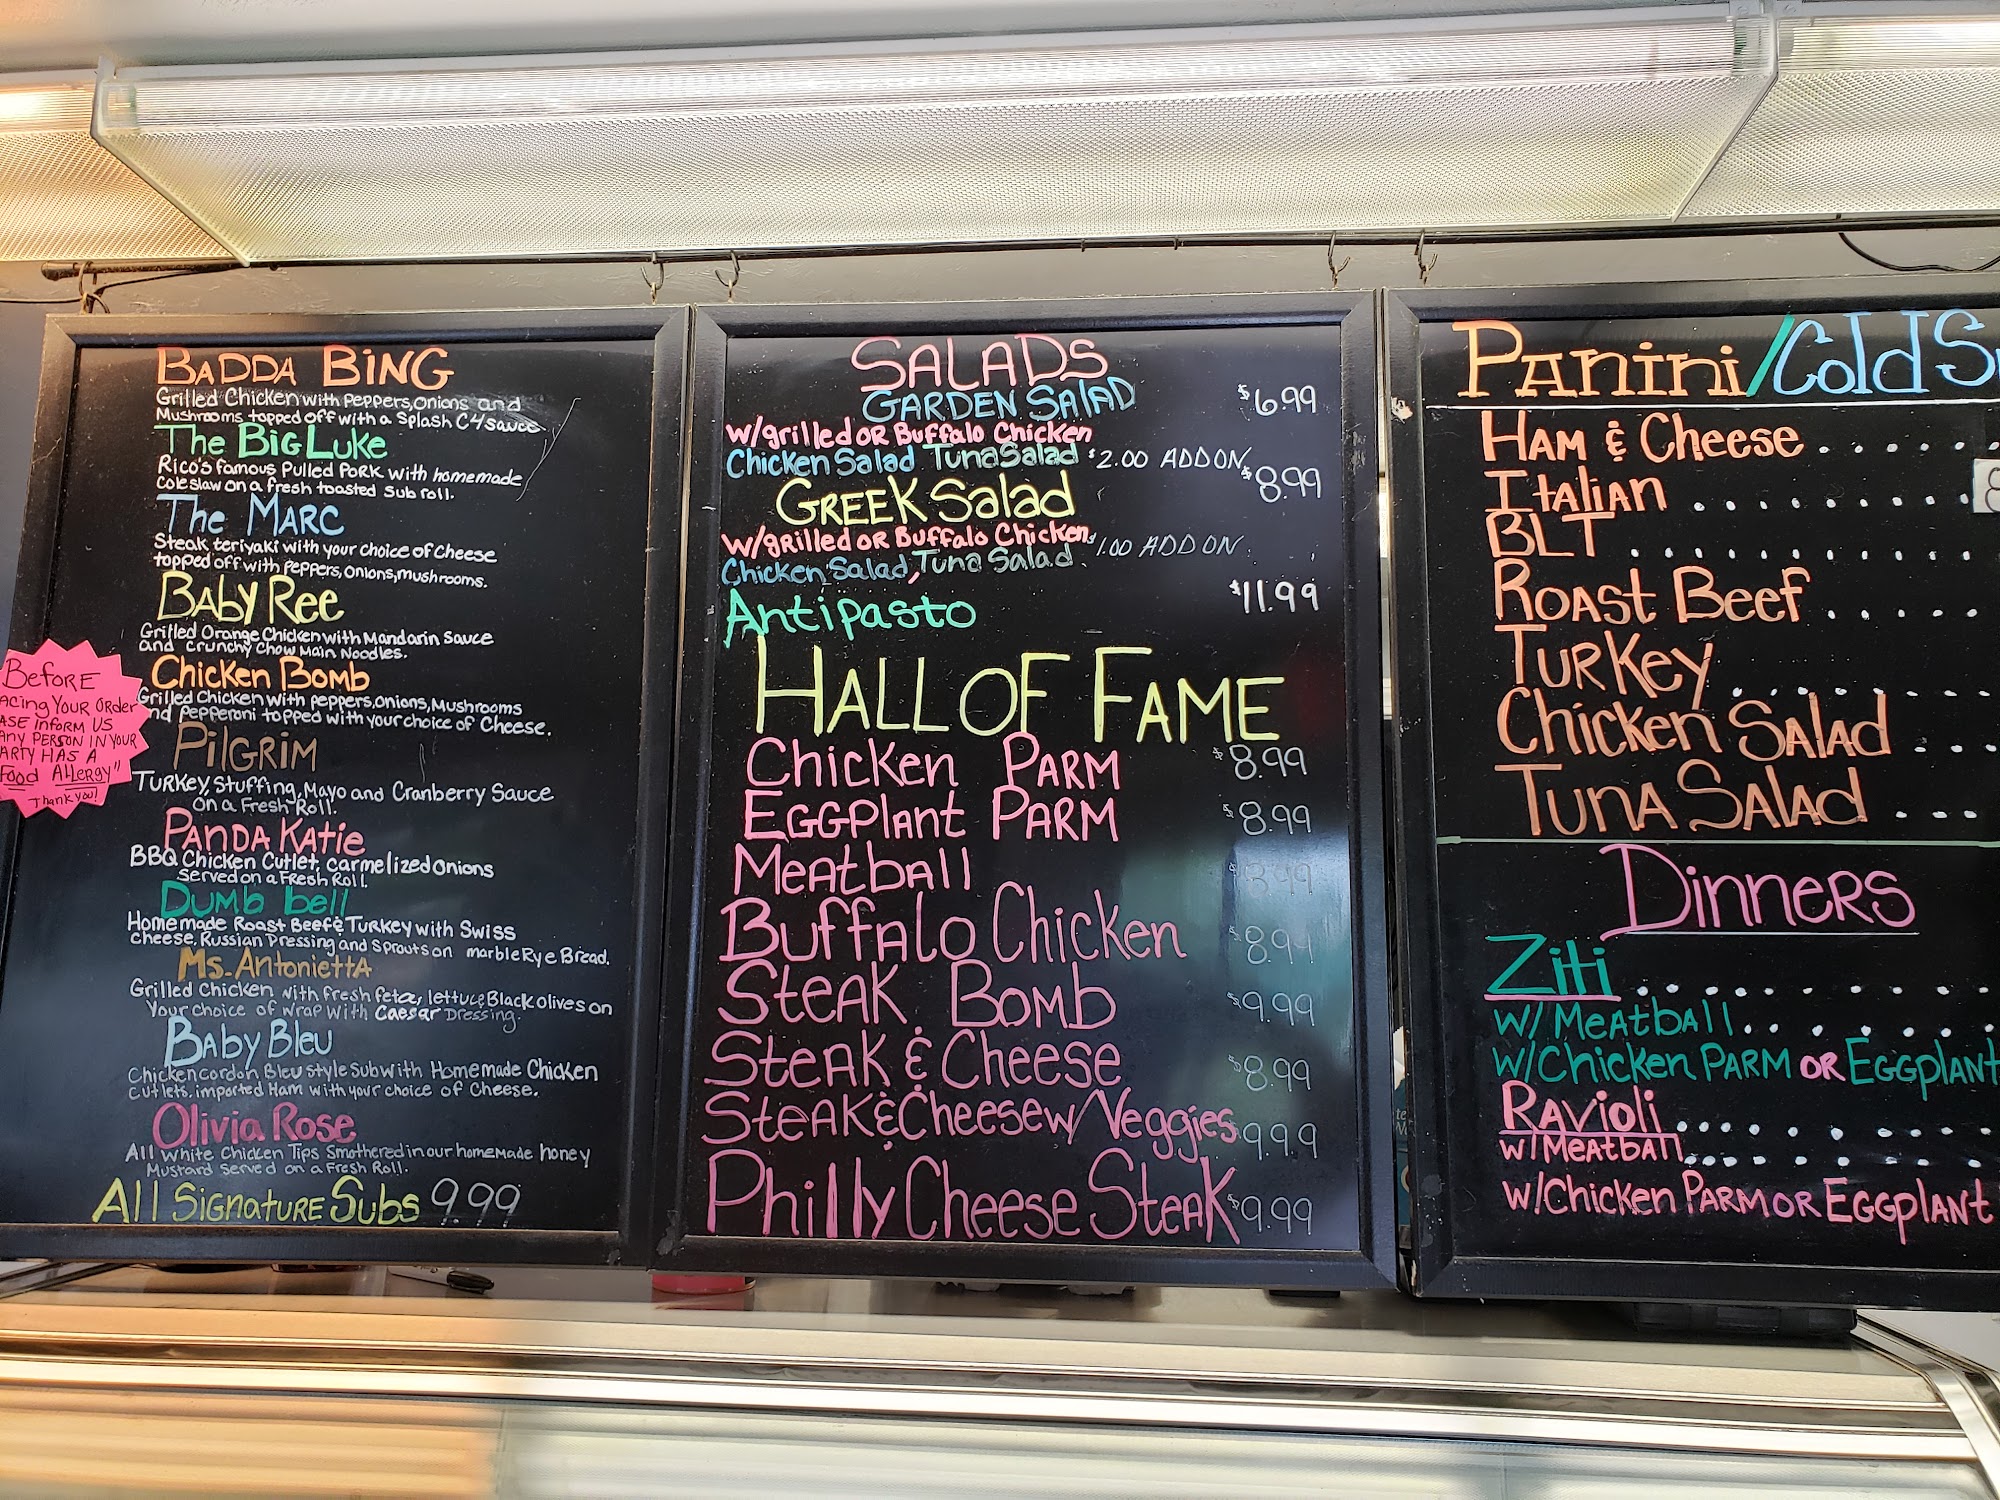 BADDA BING
Grilled Chicken with Peppers, onions and
Mushrooms topped off with a Splash C4 sauce
The Big Luke
Rico's famous Pulled Pork with homemade
Coleslaw on a fresh toasted Sub roll.
The MARC
Steak teriyaki with your choice of Cheese
topped off with Peppers, onions, mushrooms.
BABY Ree
Grilled Orange Chicken with Mandarin Sauce
and Crunchy Chow Main Noodles.
Chicken Bomb
Grilled Chicken with peppers, onions, Mushrooms
nd Pepperoni topped with your choice of Cheese.
PilGRiM
Turkey, Stuffing, Mayo and Cranberry Sauce
on a Fresh Roll.
PANDA Katie
BBQ Chicken Cutlet, carmelized onions
Served on a Fresh Roll.
Dumb bell
Homemade Roast Beef & Turkey with Swiss
cheese, Russian Dressing and Sprouts on marble Rye Bread.
Ms. Antonietta
Grilled Chicken with fresh feta, lettuce Black olives on
Your choice of wrap with Caesar Dressing.
Baby Bleu
Chicken cordon Bleu style sub with Homemade Chicken
cutlets, imported Ham with your choice of Cheese.
Olivia Rose
All white Chicken Tips Smothered in our homemade honey
Mustard served on a Fresh Roll.
All Signature Subs 9.99
Before
acing Your Order
ase inform us
any person in your
arty has a
Food Allergy"
Thank you!
SALADS
GARDEN SALAD $6.99
w/grilled OR Buffalo Chicken
Chicken Salad Tuna Salad $2.00 ADD ON
GREEK Salad $8.99
w/grilled OR Buffalo Chicken
Chicken Salad, Tuna Salad $1.00 ADD ON
Antipasto $11.99
HALL OF FAME
Chicken PARM $8.99
Eggplant PARM $8.99
Meatball 8.99
Buffalo Chicken $8.99
Steak Bomb $9.99
Steak & Cheese $8.99
Steak & Cheese w/ Veggies 9.99
Philly Cheese Steak $9.99
Panini/Cold Su
Ham & Cheese
Italian 8
BLT
Roast Beef
Turkey
Chicken Salad
Tuna Salad
Dinners
Ziti
w/ Meatball
w/Chicken PARM OR Eggplant
Ravioli
w/Meatball
w/Chicken PARM OR Eggplant